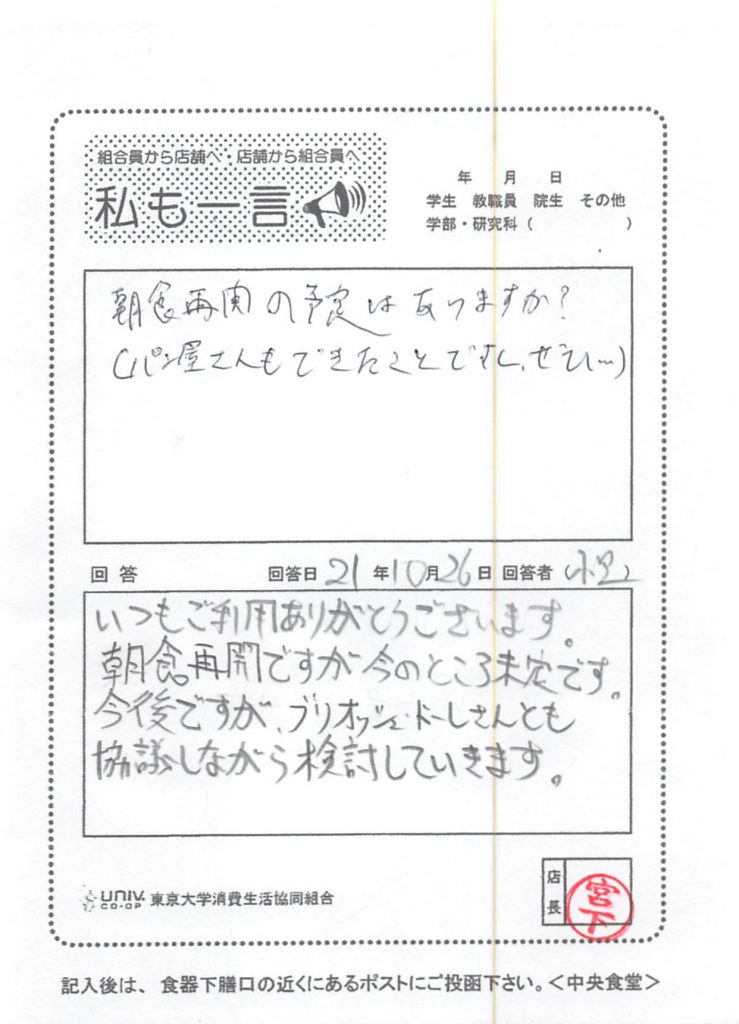 組合員から店舗へ・店舗から組合員へ
私も一言
年 月 日
学生 教職員 院生 その他
学部・研究科 ( )
朝食再開の予定はありますか?
(パン屋さんもできたことですし、ぜひ…)
回答 回答日 21 年 10 月 26 日 回答者
いつもご利用ありがとうございます。
朝食再開ですが今のところ未定です。
今後ですが、ブリオッシュ・ドーレさんとも
協議しながら検討していきます。
店長 宮下
UNIV. CO-OP 東京大学消費生活協同組合
記入後は、食器下膳口の近くにあるポストにご投函下さい。<中央食堂>